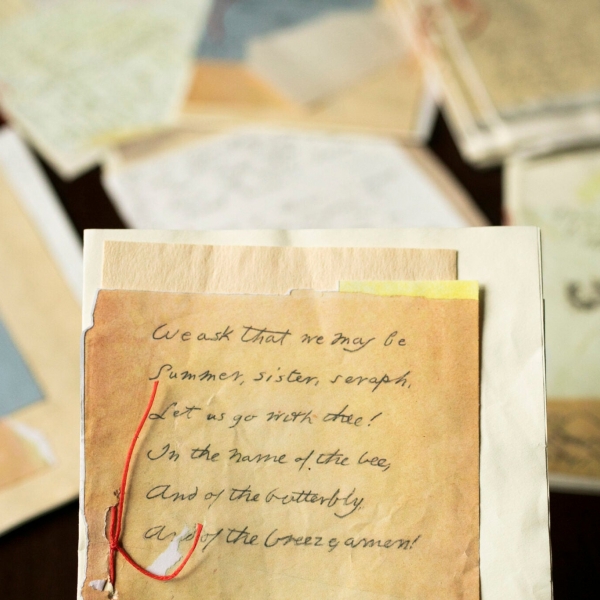 We ask that we may be
Summer, sister, seraph,
Let us go with thee!
In the name of the bee,
And of the butterbly
And of the breeze, amen!